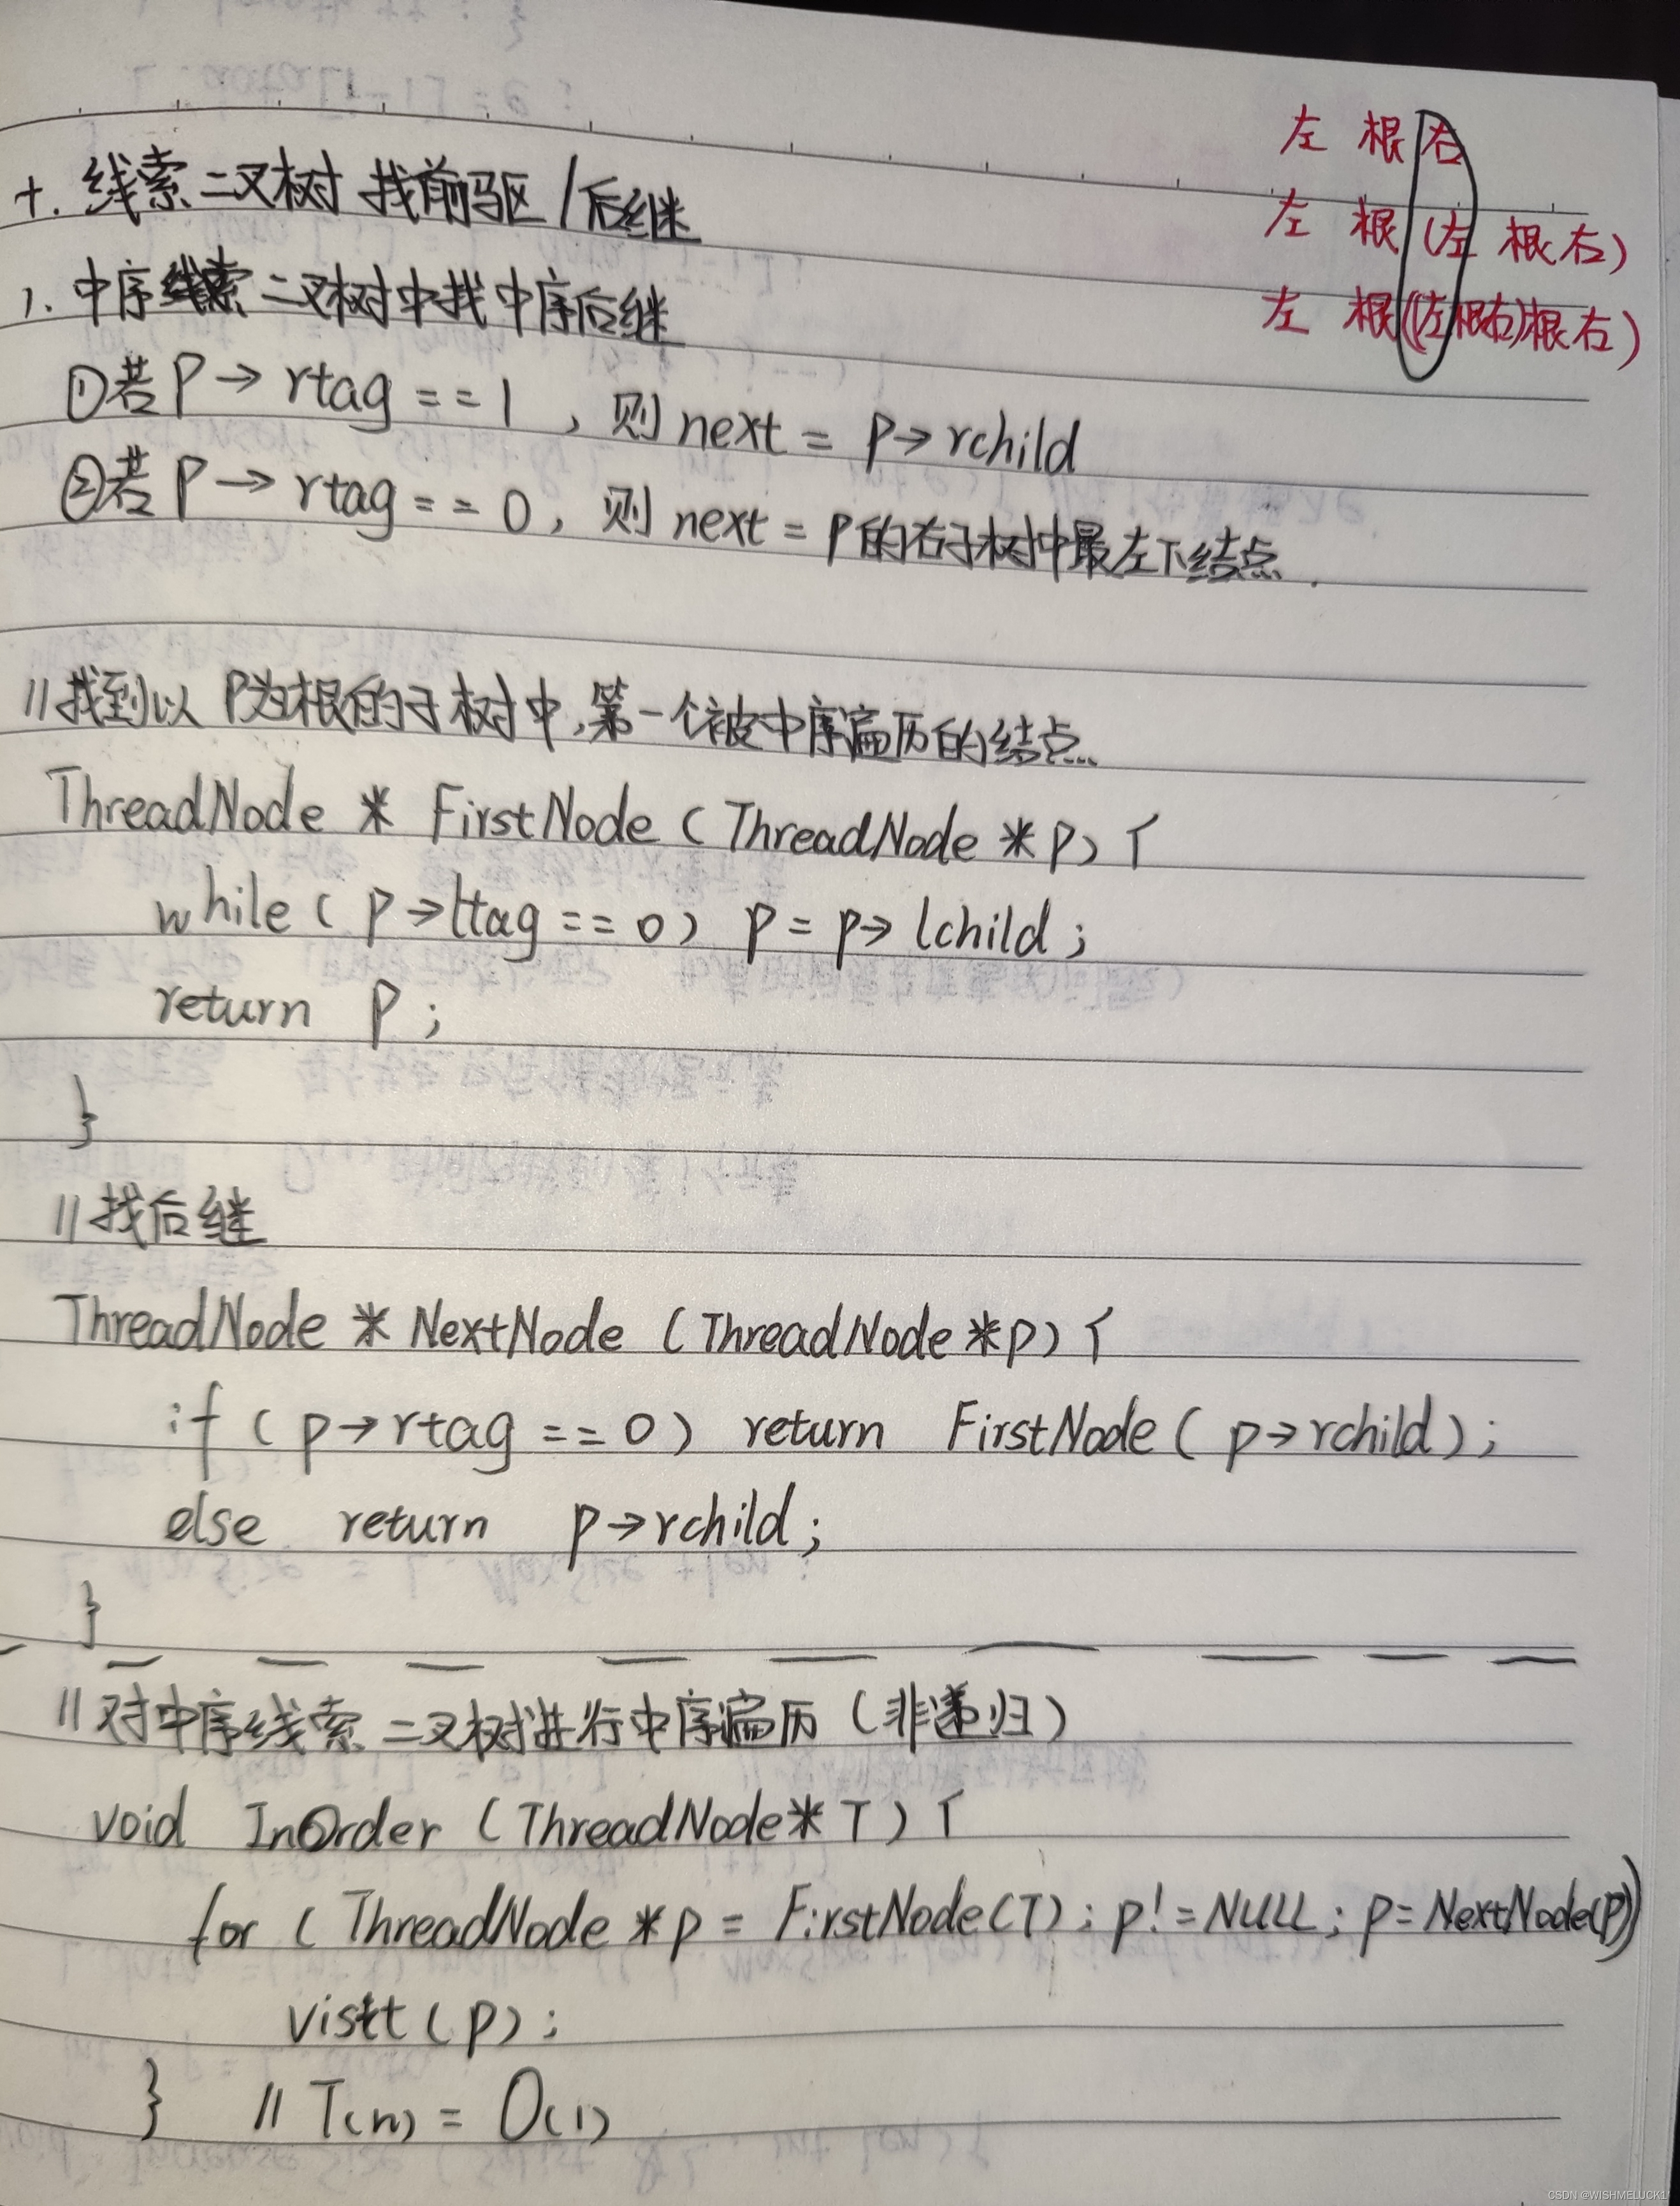 左 根 右
左 根 (左 根 右)
左 根((左根右)根右)
十. 线索二叉树 找前驱/后继
1. 中序线索二叉树中找中序后继
①若P→rtag==1，则next=p→rchild
②若P→rtag==0，则next=p的右子树中最左下结点.
//找到以P为根的子树中,第一个被中序遍历的结点
ThreadNode * FirstNode(ThreadNode *p){
while(p→ltag==0) p=p→lchild;
return p;
}
//找后继
ThreadNode * NextNode (ThreadNode *p){
if(p→rtag==0) return FirstNode(p→rchild);
else return p→rchild;
}
//对中序线索二叉树进行中序遍历(非递归)
void InOrder (ThreadNode* T){
for ( ThreadNode *p = FirstNode(T); p!=NULL; p=NextNode(p))
visit(p);
} // T(n) = O(1)
CSDN @WISHMELUCK1